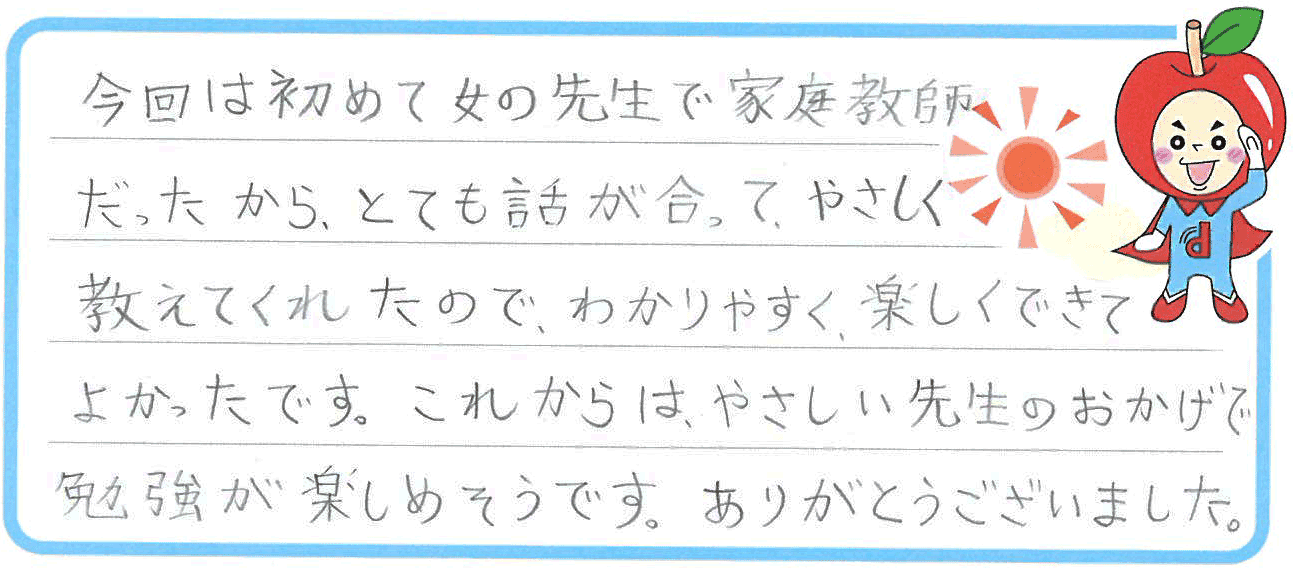 今回は初めて女の先生で家庭教師
だったから、とても話が合って、やさしく
教えてくれたので、わかりやすく、楽しくできて
よかったです。これからは、やさしい先生のおかげで
勉強が楽しめそうです。ありがとうございました。
d